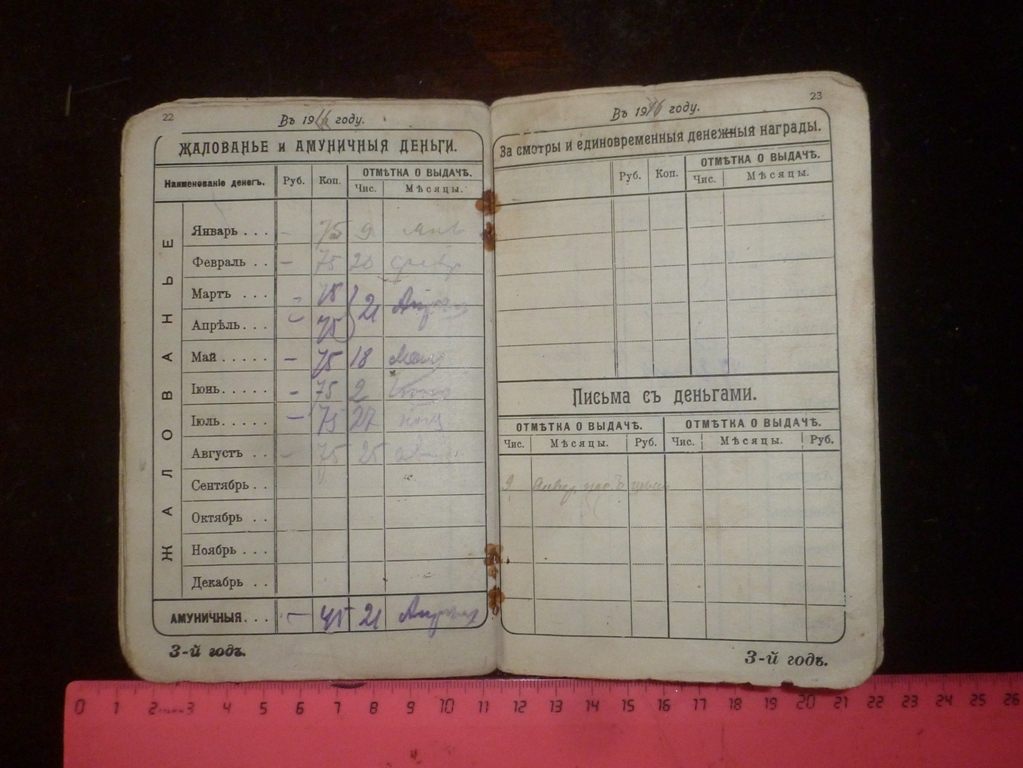 22
Въ 1916 году.
ЖАЛОВАНЬЕ и АМУНИЧНЫЯ ДЕНЬГИ.
Наименованіе денегъ. Руб. Коп. ОТМѢТКА О ВЫДАЧѢ.
Чис. Мѣсяцы.
ЖАЛОВАНЬЕ
Январь . . . - 75 9 янв
Февраль . . - 75 20 февр
Мартъ . . . - 75
Апрѣль . . . - 75 21 Апрѣля
Май . . . . . - 75 18 Мая
Іюнь . . . . - 75 2
Іюль . . . . . - 75 27
Августъ . . - 75 25
Сентябрь . .
Октябрь . .
Ноябрь . . .
Декабрь . .
АМУНИЧНЫЯ. . . - 45 21 Апрѣля
3-й годъ.
23
Въ 1916 году.
За смотры и единовременныя денежныя награды.
Руб. Коп. ОТМѢТКА О ВЫДАЧѢ.
Чис. Мѣсяцы.
Письма съ деньгами.
ОТМѢТКА О ВЫДАЧѢ. ОТМѢТКА О ВЫДАЧѢ.
Чис. Мѣсяцы. Руб. Чис. Мѣсяцы. Руб.
9
3-й годъ.
0 1 2 3 4 5 6 7 8 9 10 11 12 13 14 15 16 17 18 19 20 21 22 23 24 25 26